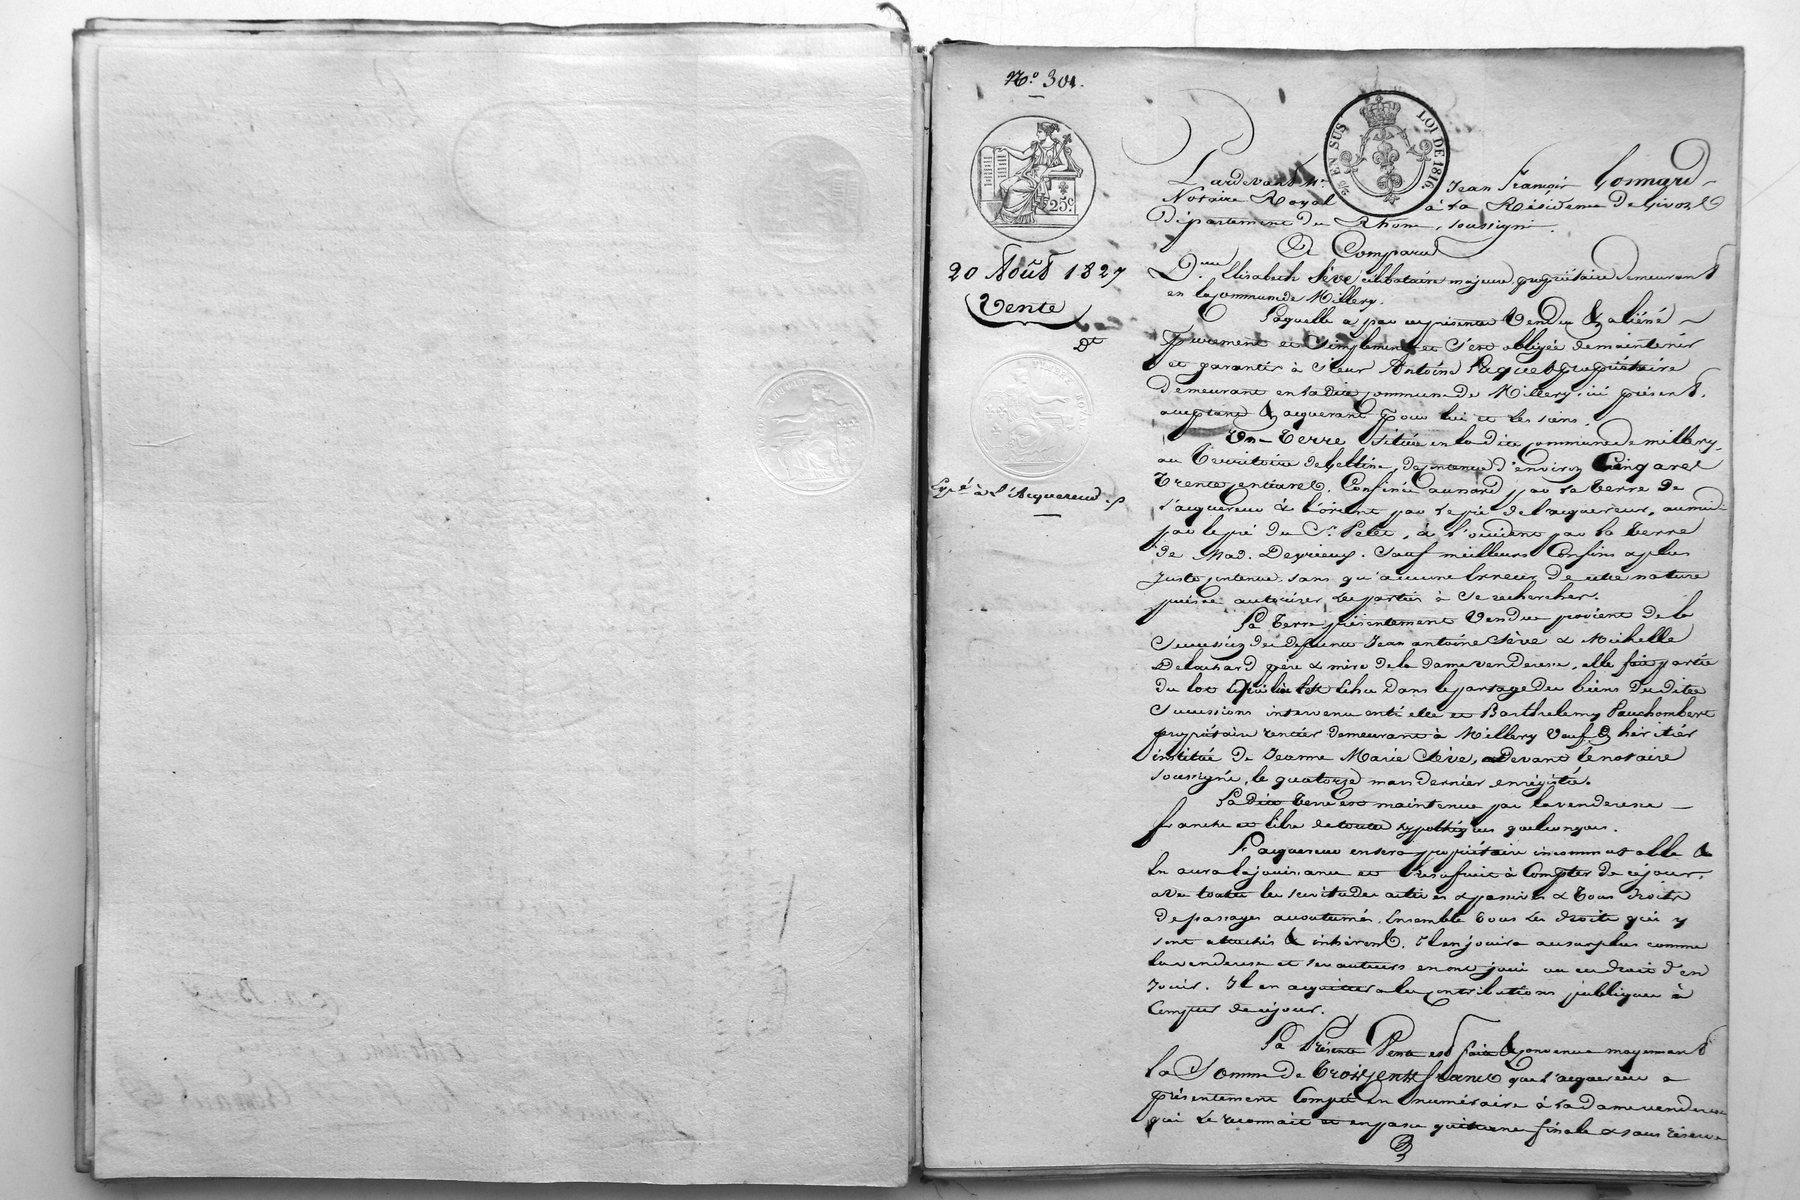 N.º 301.
25 EN SUS
LOI DE 1816.
25 c.
20 Août 1827
Vente
Expé à l'Acquereur
Pardevant Me Jean François Gonnard
Notaire Royal à la Résidence de Givors
Département du Rhône, soussigné.
A Comparu
Dlle Elisabeth Sève célibataire majeure, propriétaire demeurant
en la commune de Millery.
Laquelle a par ces présentes Vendu & aliéné
purement et simplement et s'est obligée de maintenir
et garantir à sieur Antoine Paquet propriétaire
demeurant en la dite commune de Millery, ici présent,
acceptant & acquerant pour lui et les siens,
Une Terre située en la dite commune de millery,
au Territoire de , de contenue d'environ Cinq ares
Trente centiares. Confinée au nord par la terre de
l'acquereur & l'orient par le pré de l'acquereur, au midi
par le pré du Sr Pelet, à l'occident par la terre
de Mad. Deprieux. Sauf meilleurs Confins & plus
juste contenue, sans qu'aucune Erreur de cette nature
puisse autoriser les parties à se rechercher.
La Terre présentement Vendue provient de la
Succession des defunts Jean antoine Sève & Michelle
Delachard père & mère de la dame venderesse, elle fait partie
du lot qui lui est échu dans le partage des biens des dites
Successions intervenu entre elle et Barthelemy Pauchombert
propriétaire rentier demeurant à Millery Veuf & héritier
institué de Jeanne Marie Sève, devant le notaire
soussigné, le quatorze mars dernier, enregistré.
La dite Terre est maintenue par la venderesse
franche et libre de toutes hypothèques quelconques.
L'acquereur en sera propriétaire incommutable &
En aura la jouissance et l'usufruit à Compter de ce jour,
avec toutes les servitudes actives & passives & Tous droits
de passages accoutumés, Ensemble tous les droits qui y
sont attachés & inhérents. Il en jouira au surplus comme
la venderesse et ses auteurs en ont joui ou eu droit d'en
Jouir. Il en acquittera les contributions publiques à
Compter de ce jour.
La Présente Vente est faite & convenue moyennant
la Somme de Trois cents francs que l'acquereur a
présentement Compté en numéraire à la dame venderesse
qui le reconnait et en passe quittance finale & sans réserve